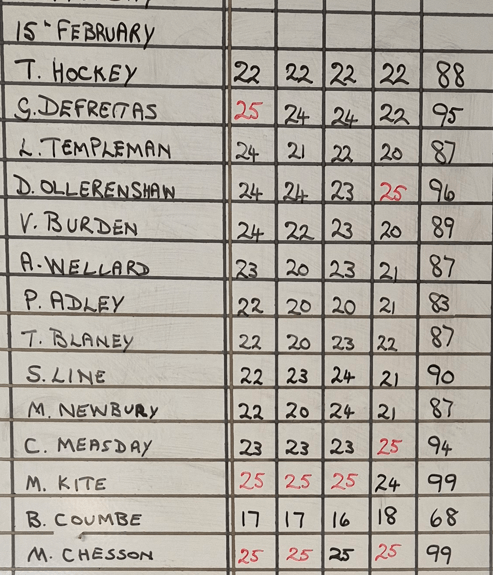 15th FEBRUARY
T. HOCKEY 22 22 22 22 88
G. DEFREITAS 25 24 24 22 95
L. TEMPLEMAN 24 21 22 20 87
D. OLLERENSHAW 24 24 23 25 96
V. BURDEN 24 22 23 20 89
A. WELLARD 23 20 23 21 87
P. ADLEY 22 20 20 21 83
T. BLANEY 22 20 23 22 87
S. LINE 22 23 24 21 90
M. NEWBURY 22 20 24 21 87
C. MEASDAY 23 23 23 25 94
M. KITE 25 25 25 24 99
B. COUMBE 17 17 16 18 68
M. CHESSON 25 25 25 25 99